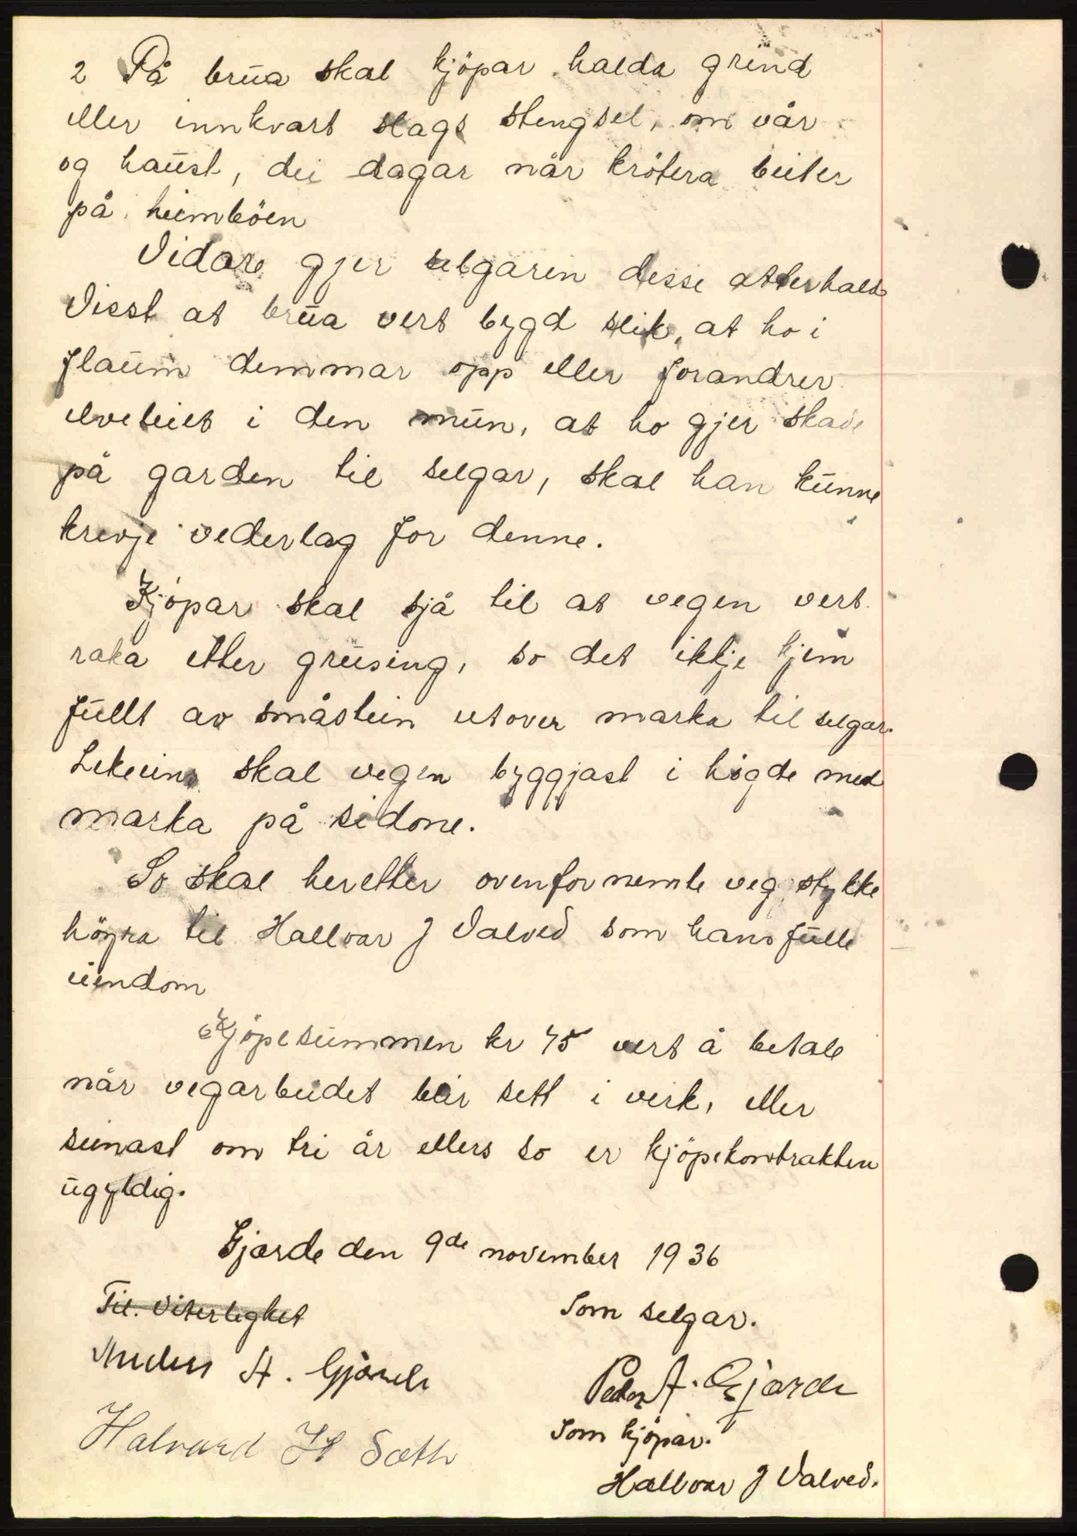 2 På brua skal kjöpar halda grind
eller innkvart slags stengsel, om vår
og haust, dei dagar når krötera beiter
på heimböen
Vidare gjer selgaren desse atterhald
Visst at brua vert bygd slik, at ho i
flaum demmar opp eller forandrer
elveleiet i den mun, at ho gjer skade
på garden til selgar, skal han kunne
krevje vederlag for denne.
Kjöpar skal sjå til at vegen vert
raka etter grusing, so det ikkje kjem
fullt av småstein utover marka til selgar.
Likeeins skal vegen byggjast i högde med
marka på sidone.
So skal heretter ovenfor nemte vegstykke
höyra til Hallvar J Valved som hans fulle
eiendom
Kjöpesummen kr 75 vert å betale
når vegarbeidet blir sett i verk, eller
seinast om tri år ellers so er kjöpekontrakten
ugyldig.
Gjærde den 9de november 1936
Til Viterlighet
Som selgar.
Anders A. Gjærde
Peder A. Gjærde
Som kjöpar.
Halvard H Sæth
Hallvar J Valved.